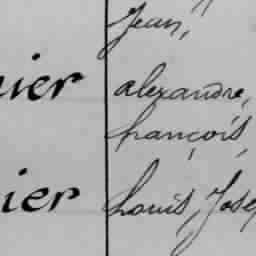 Jean,
nier alexandre,
françois,
ier Louis, Jose